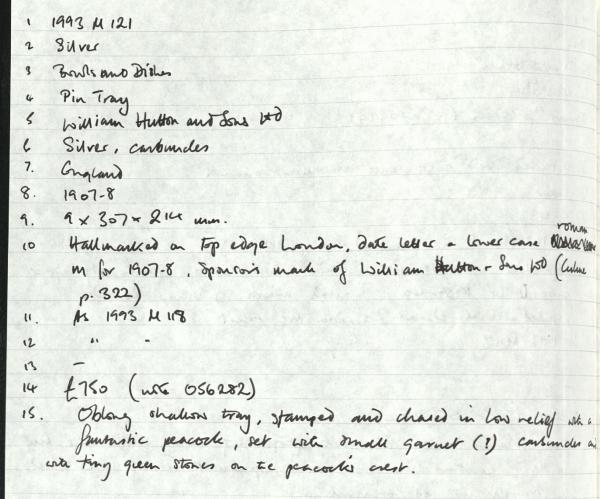 1 1993 M 121
2 Silver
3 Bowls and Dishes
4 Pin Tray
5 William Hutton and Sons Ltd
6 Silver, carbuncles
7. England
8. 1907-8
9. 9 x 307 x 214 mm.
roman
10 Hallmarked on top edge London, date letter a lower case
m for 1907-8, sponsor's mark of William Hutton & Sons Ltd (Culme
p. 322)
11. As 1993 M 118
12 " "
13 —
14 £750 (with 056282)
15. Oblong shallow tray, stamped and chased in low relief with a
fantastic peacock, set with small garnet (?) carbuncles and
with tiny green stones on the peacock's crest.